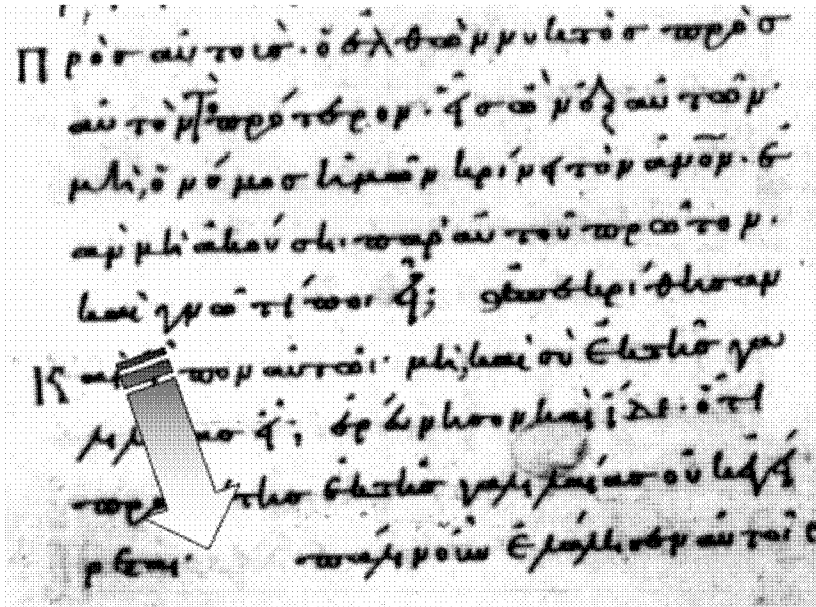 Πρὸς αὐτούς· ὁ ἐλθὼν νυκτὸς πρὸς
αὐτὸν τὸ πρότερον· εἷς ὢν ἐξ αὐτῶν·
μὴ, ὁ νόμος ἡμῶν κρίνει τὸν ἄνον· ἐ
ὰν μὴ ἀκούσῃ· παρ' αὐτοῦ πρῶτον·
καὶ γνῶ τί ποιεῖ; ἀπεκρίθησαν
αὐτῶ· μὴ, καὶ σὺ ἐκ τῆς γα
εἶ; ἐρεύνησον καὶ ἴδε· ὅτι
ἐκ τῆς γαλιλαίας οὐκ ἐγεί
ρεται· πάλιν οὖν ἐλάλησεν αὐτοῖς